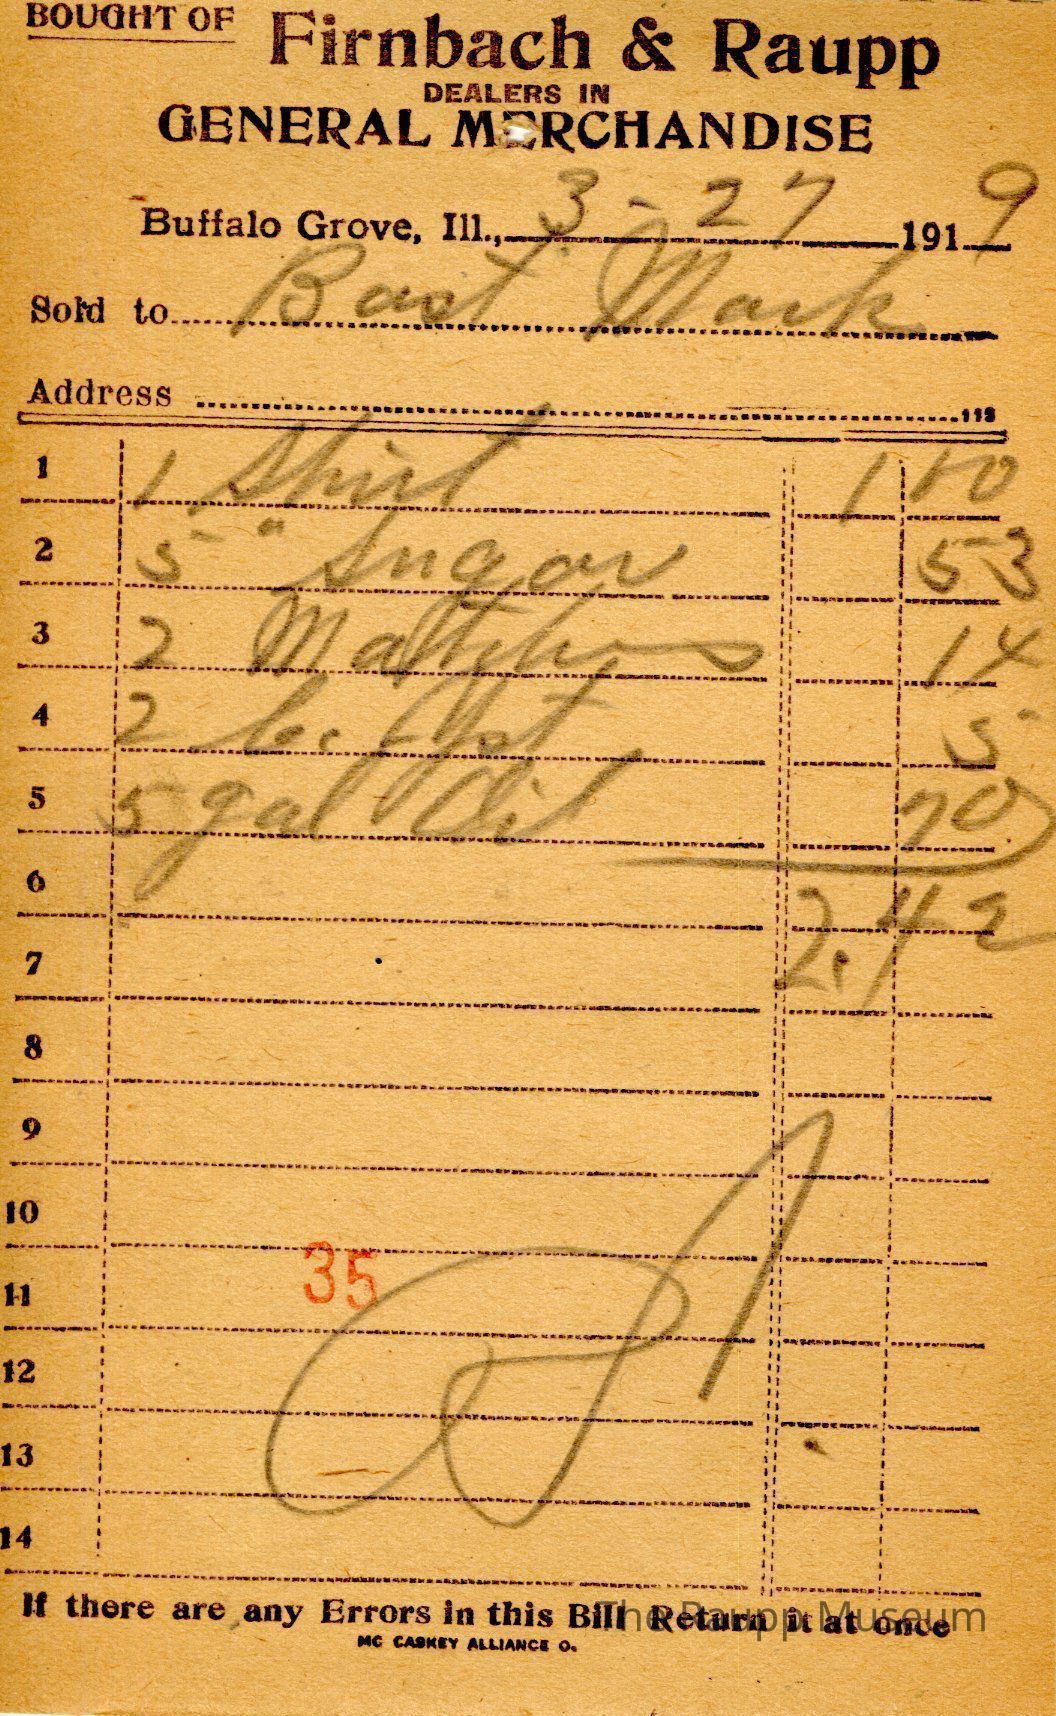 BOUGHT OF
Firnbach & Raupp
DEALERS IN
GENERAL MERCHANDISE
Buffalo Grove, Ill., 3-27 1919
Sold to Bast Mark
Address
113
1 1 Shirt 1 00
2 5 " Sugar 53
3 2 14
4 2 5
5 5 gal Oil 70
6 2.42
7
8
9
10
35
11
12
13
14
If there are any Errors in this Bill Return it at once
The Raupp Museum
MC CASKEY ALLIANCE O.